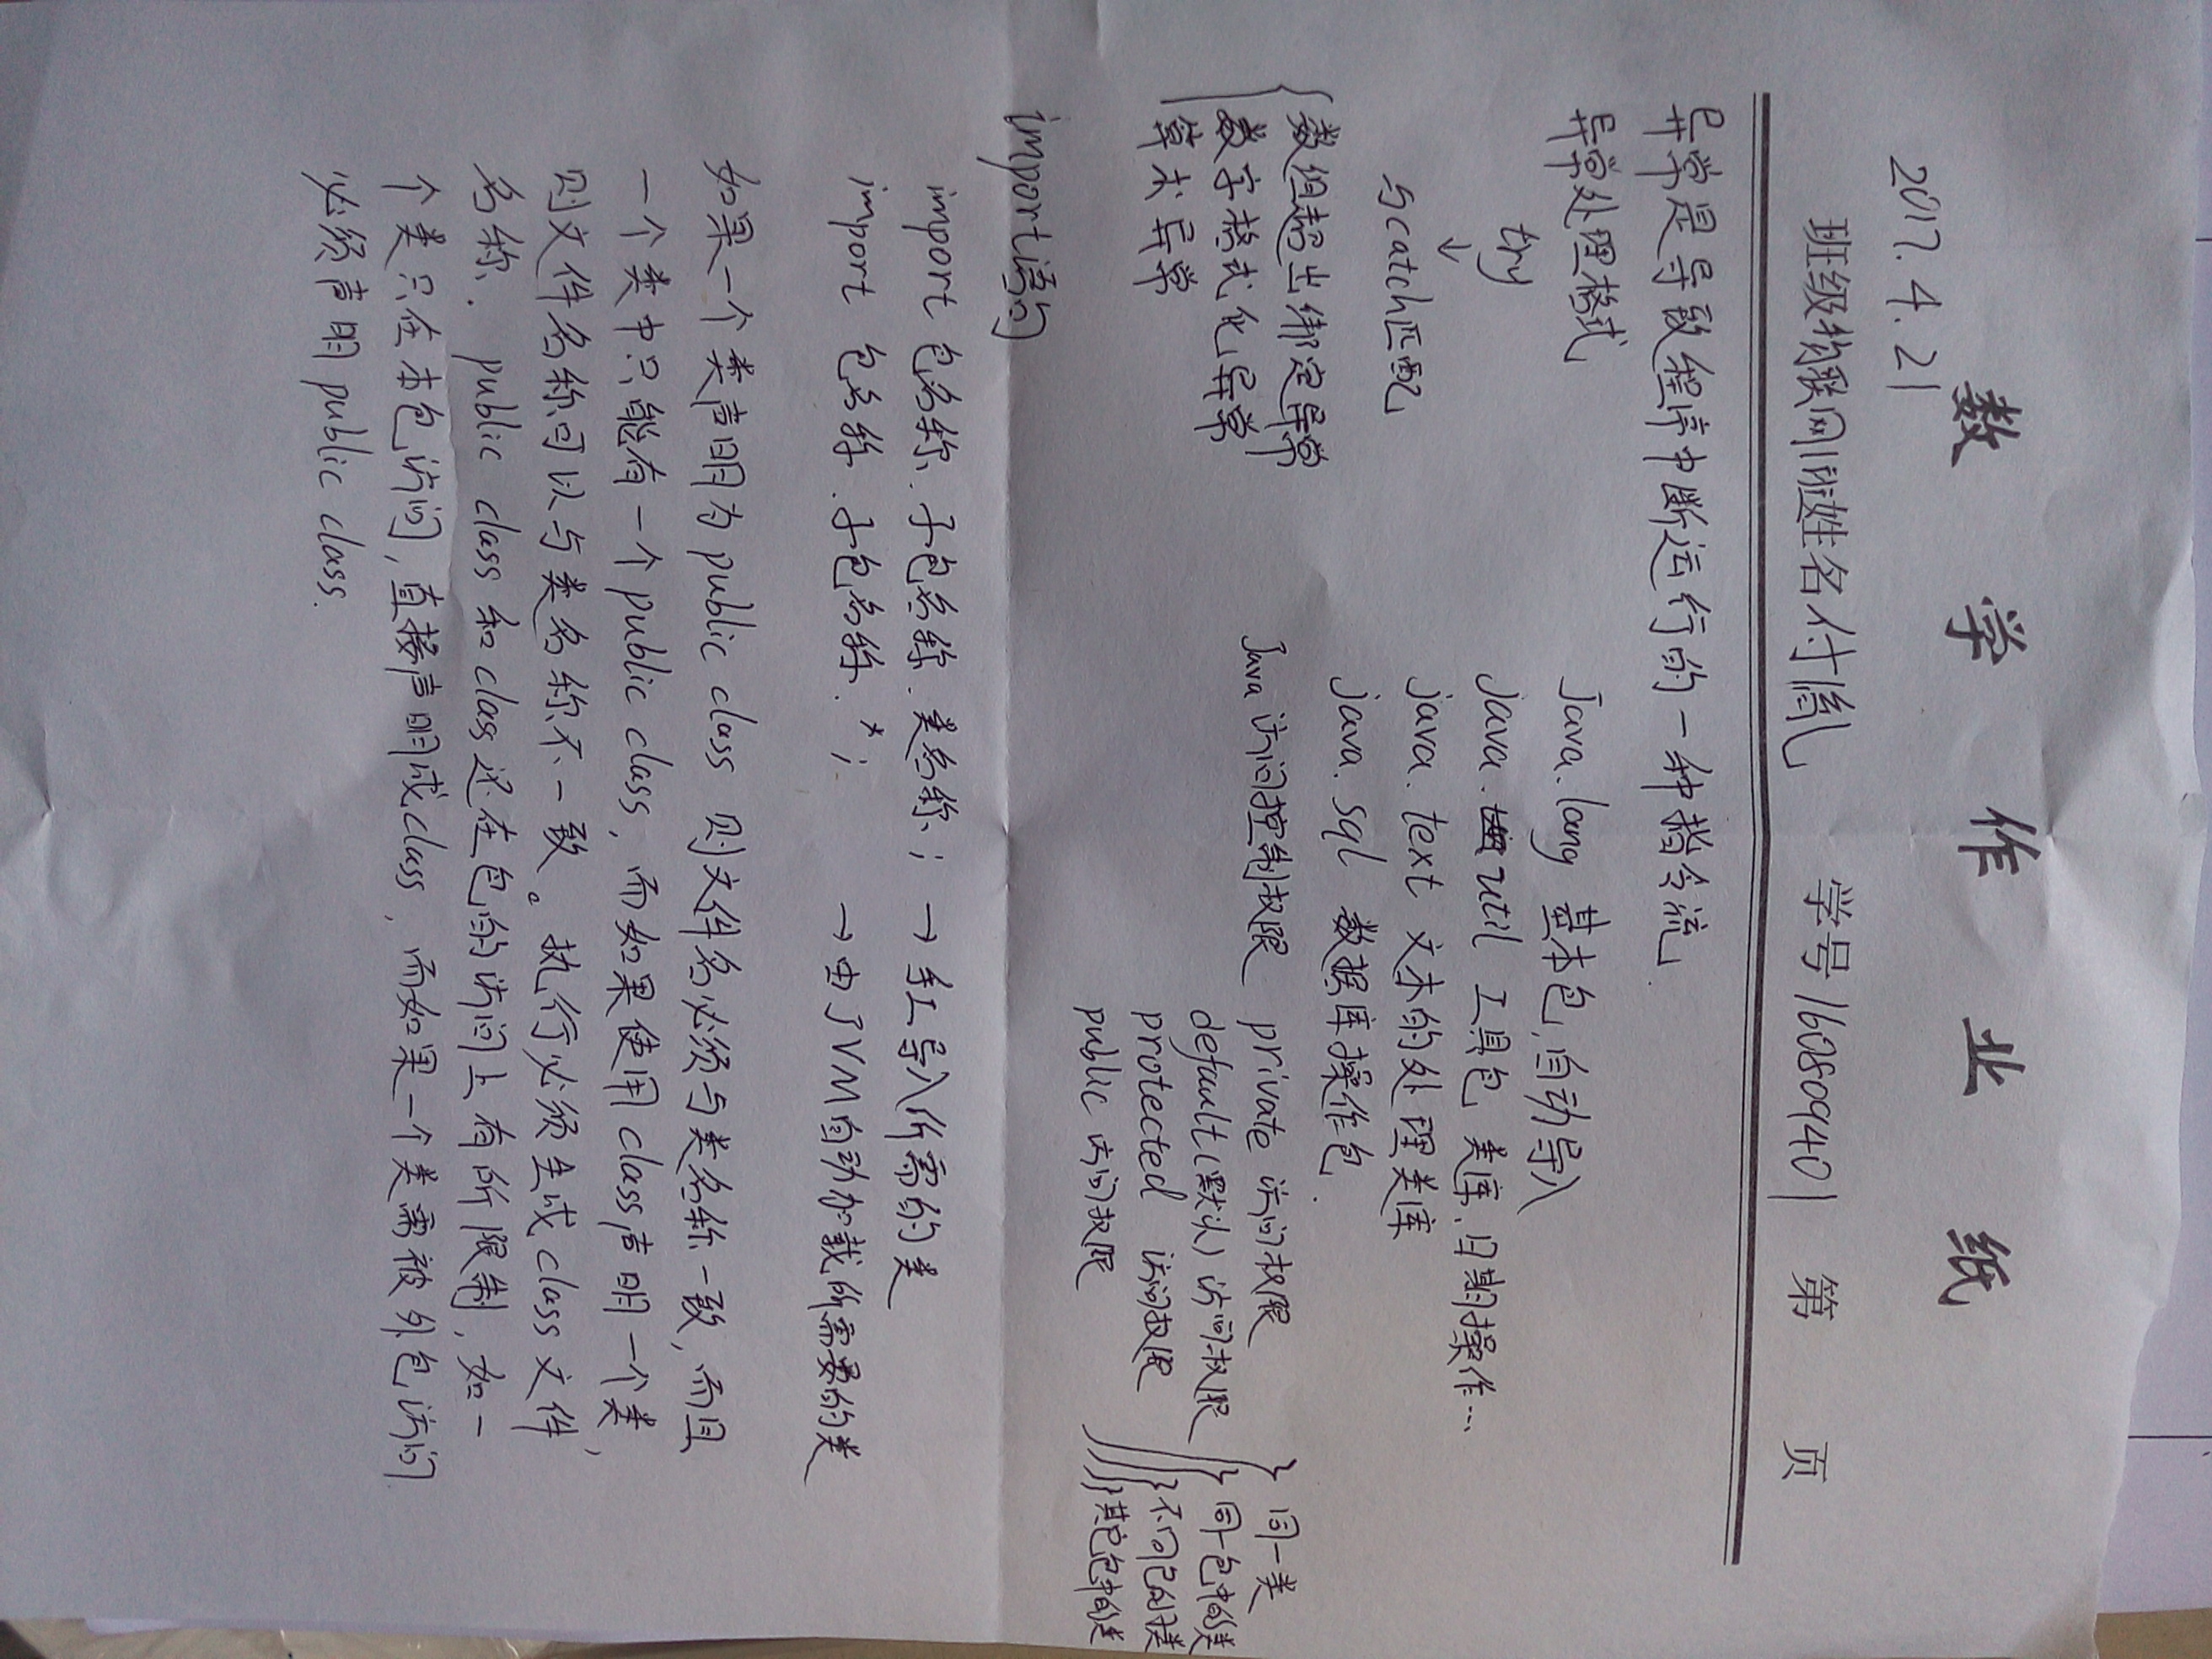 数学作业纸
2017.4.21
班级物联网1班姓名付胤 学号160809401 第 页
异常是导致程序中断运行的一种指令流.
异常处理格式
try
↓
与catch匹配
数组超出绑定异常
数字格式化异常
算术异常
Java.lang 基本包,自动导入
java.util 工具包,类库,日期操作…
java.text 文本的处理类库
java.sql 数据库操作包.
Java访问控制权限 private 访问权限 } 同一类
default(默认)访问权限 } 同一包中的类
protected 访问权限 } 不同包的子类
public 访问权限 } 其它包中的类
import语句
import 包名称.子包名称.类名称; → 手工导入所需的类
import 包名称.子包名称.*; → 由JVM自动加载所需要的类
如果一个类声明为public class 则文件名必须与类名称一致,而且
一个类中只能有一个public class,而如果使用class声明一个类,
则文件名称可以与类名称不一致。执行必须生成class文件
名称. public class和class还在包的访问上有所限制,如一
个类只在本包访问,直接声明成class,而如果一个类需被外包访问
必须声明public class.